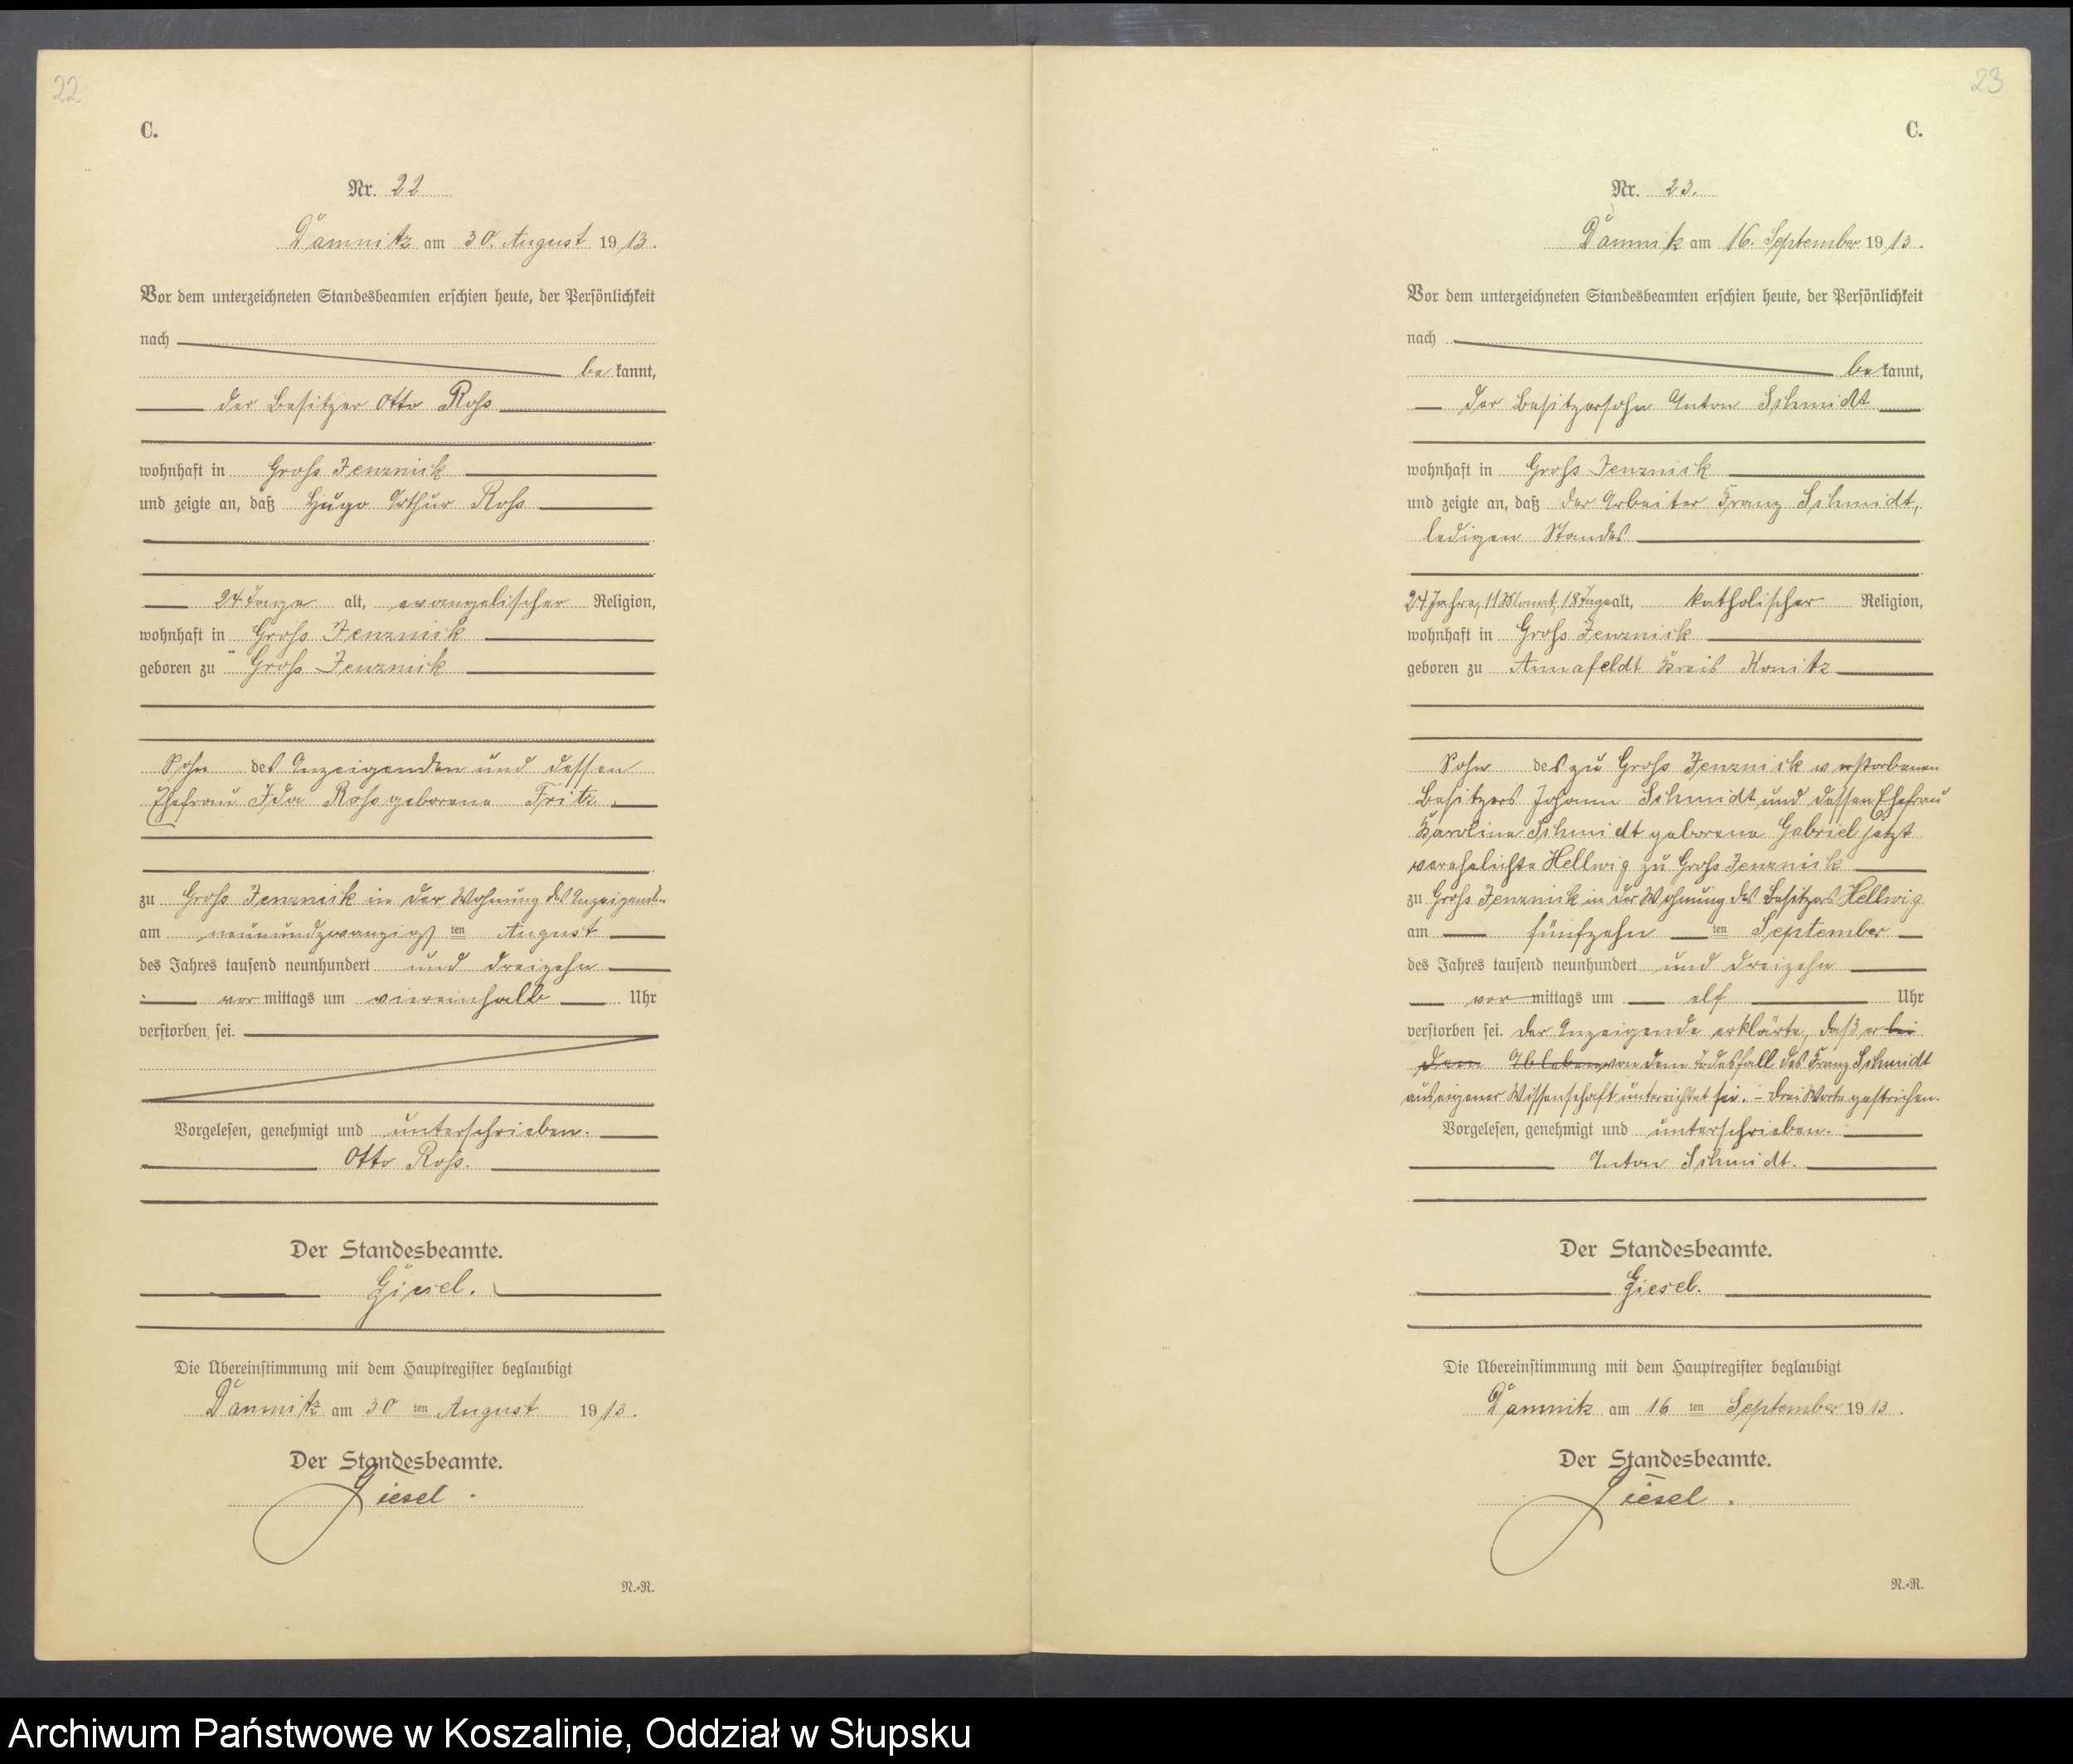 22
C.
Nr. 22
Damnitz am 30. August 1913.
Vor dem unterzeichneten Standesbeamten erschien heute, der Persönlichkeit
nach
bekannt,
der Besitzer Otto Ross
wohnhaft in Gross Jenznick
und zeigte an, daß Hugo Arthur Ross
24 Tage alt, evangelischer Religion,
wohnhaft in Gross Jenznick
geboren zu Gross Jenznick
Sohn des Anzeigenden und dessen
Ehefrau Ida Ross geborene Fritz
zu Gross Jenznick in der Wohnung des Anzeigenden
am neunundzwanzigsten August
des Jahres tausend neunhundert und dreizehn
vormittags um viereinhalb Uhr
verstorben sei.
Vorgelesen, genehmigt und unterschrieben.
Otto Ross.
Der Standesbeamte.
Giesel.
Die Übereinstimmung mit dem Hauptregister beglaubigt
Damnitz am 30ten August 1913.
Der Standesbeamte.
Giesel.
N.-R.
23
C.
Nr. 23.
Damnitz am 16. September 1913.
Vor dem unterzeichneten Standesbeamten erschien heute, der Persönlichkeit
nach
bekannt,
der Besitzersohn Anton Schmidt
wohnhaft in Gross Jenznick
und zeigte an, daß der Arbeiter Franz Schmidt,
ledigen Standes
24 Jahre, 11 Monat, 18 Tage alt, katholischer Religion,
wohnhaft in Gross Jenznick
geboren zu Annafeldt Kreis Konitz
Sohn des zu Gross Jenznick verstorbenen
Besitzers Johann Schmidt und dessen Ehefrau
Karoline Schmidt geborene Gabriel jetzt
verehelichte Hellwig zu Gross Jenznick
zu Gross Jenznick in der Wohnung des Besitzers Hellwig
am fünfzehnten September
des Jahres tausend neunhundert und dreizehn
vormittags um elf Uhr
verstorben sei. Der Anzeigende erklärte, daß er bei
dem Ableben von dem Todesfall des Franz Schmidt
aus eigener Wissenschaft unterrichtet sei. – Drei Worte gestrichen.
Vorgelesen, genehmigt und unterschrieben.
Anton Schmidt.
Der Standesbeamte.
Giesel.
Die Übereinstimmung mit dem Hauptregister beglaubigt
Damnitz am 16ten September 1913.
Der Standesbeamte.
Giesel.
N.-R.
Archiwum Państwowe w Koszalinie, Oddział w Słupsku